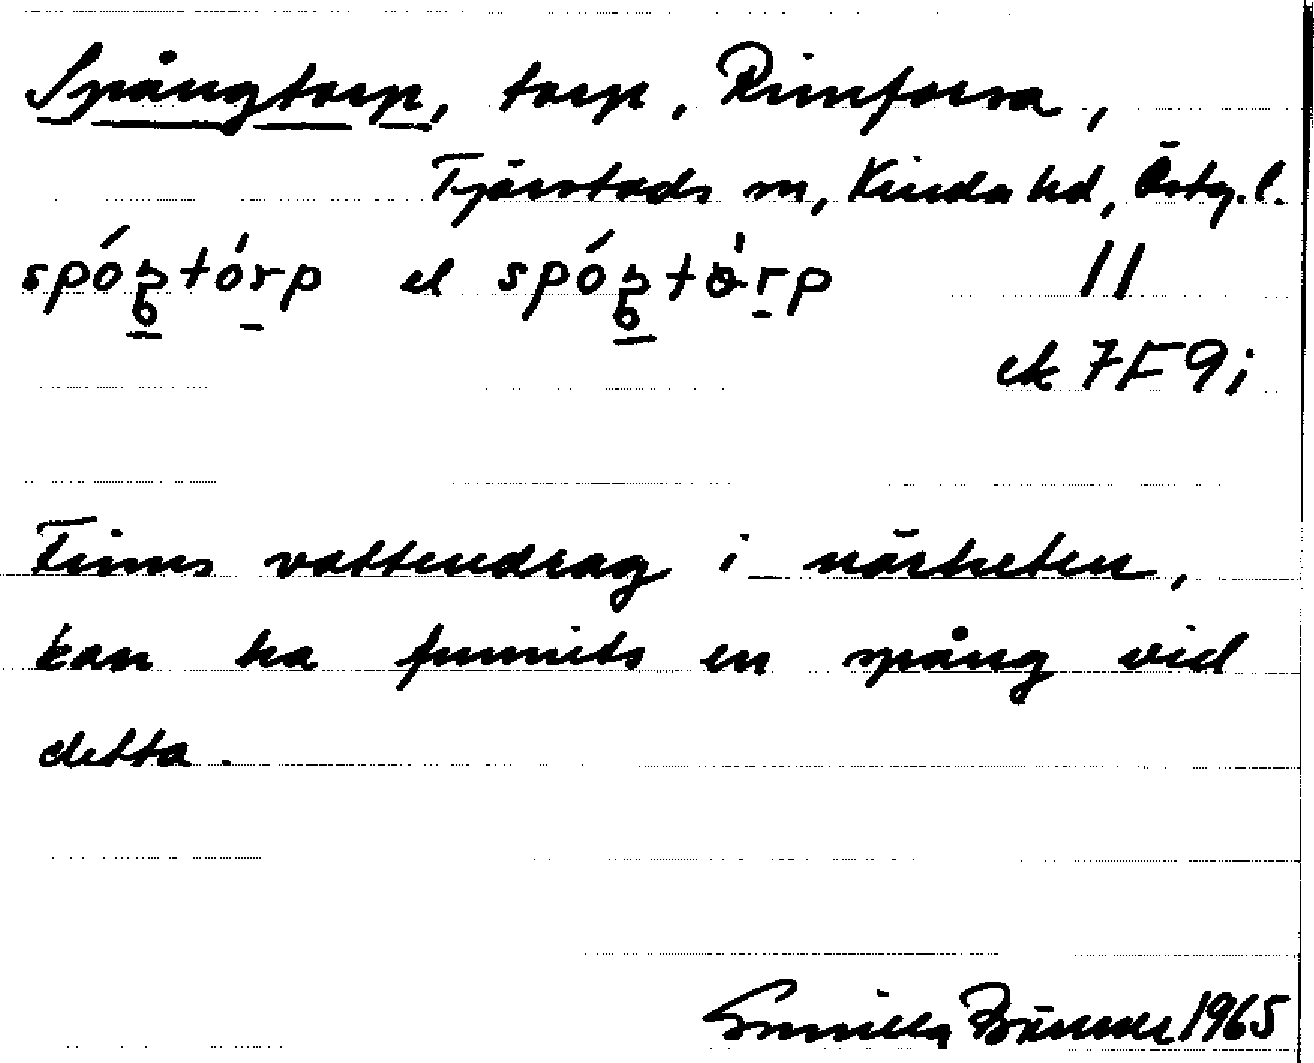 Spångtorp, torp, Rimforsa,
Tjärstads sn, Kinda hd, Östg.l.
spóŋtórp el spóŋtòrp 11
ek 7F9i
Finns vattendrag i närheten,
kan ha funnits en spång vid
detta.
Gunilla 1965